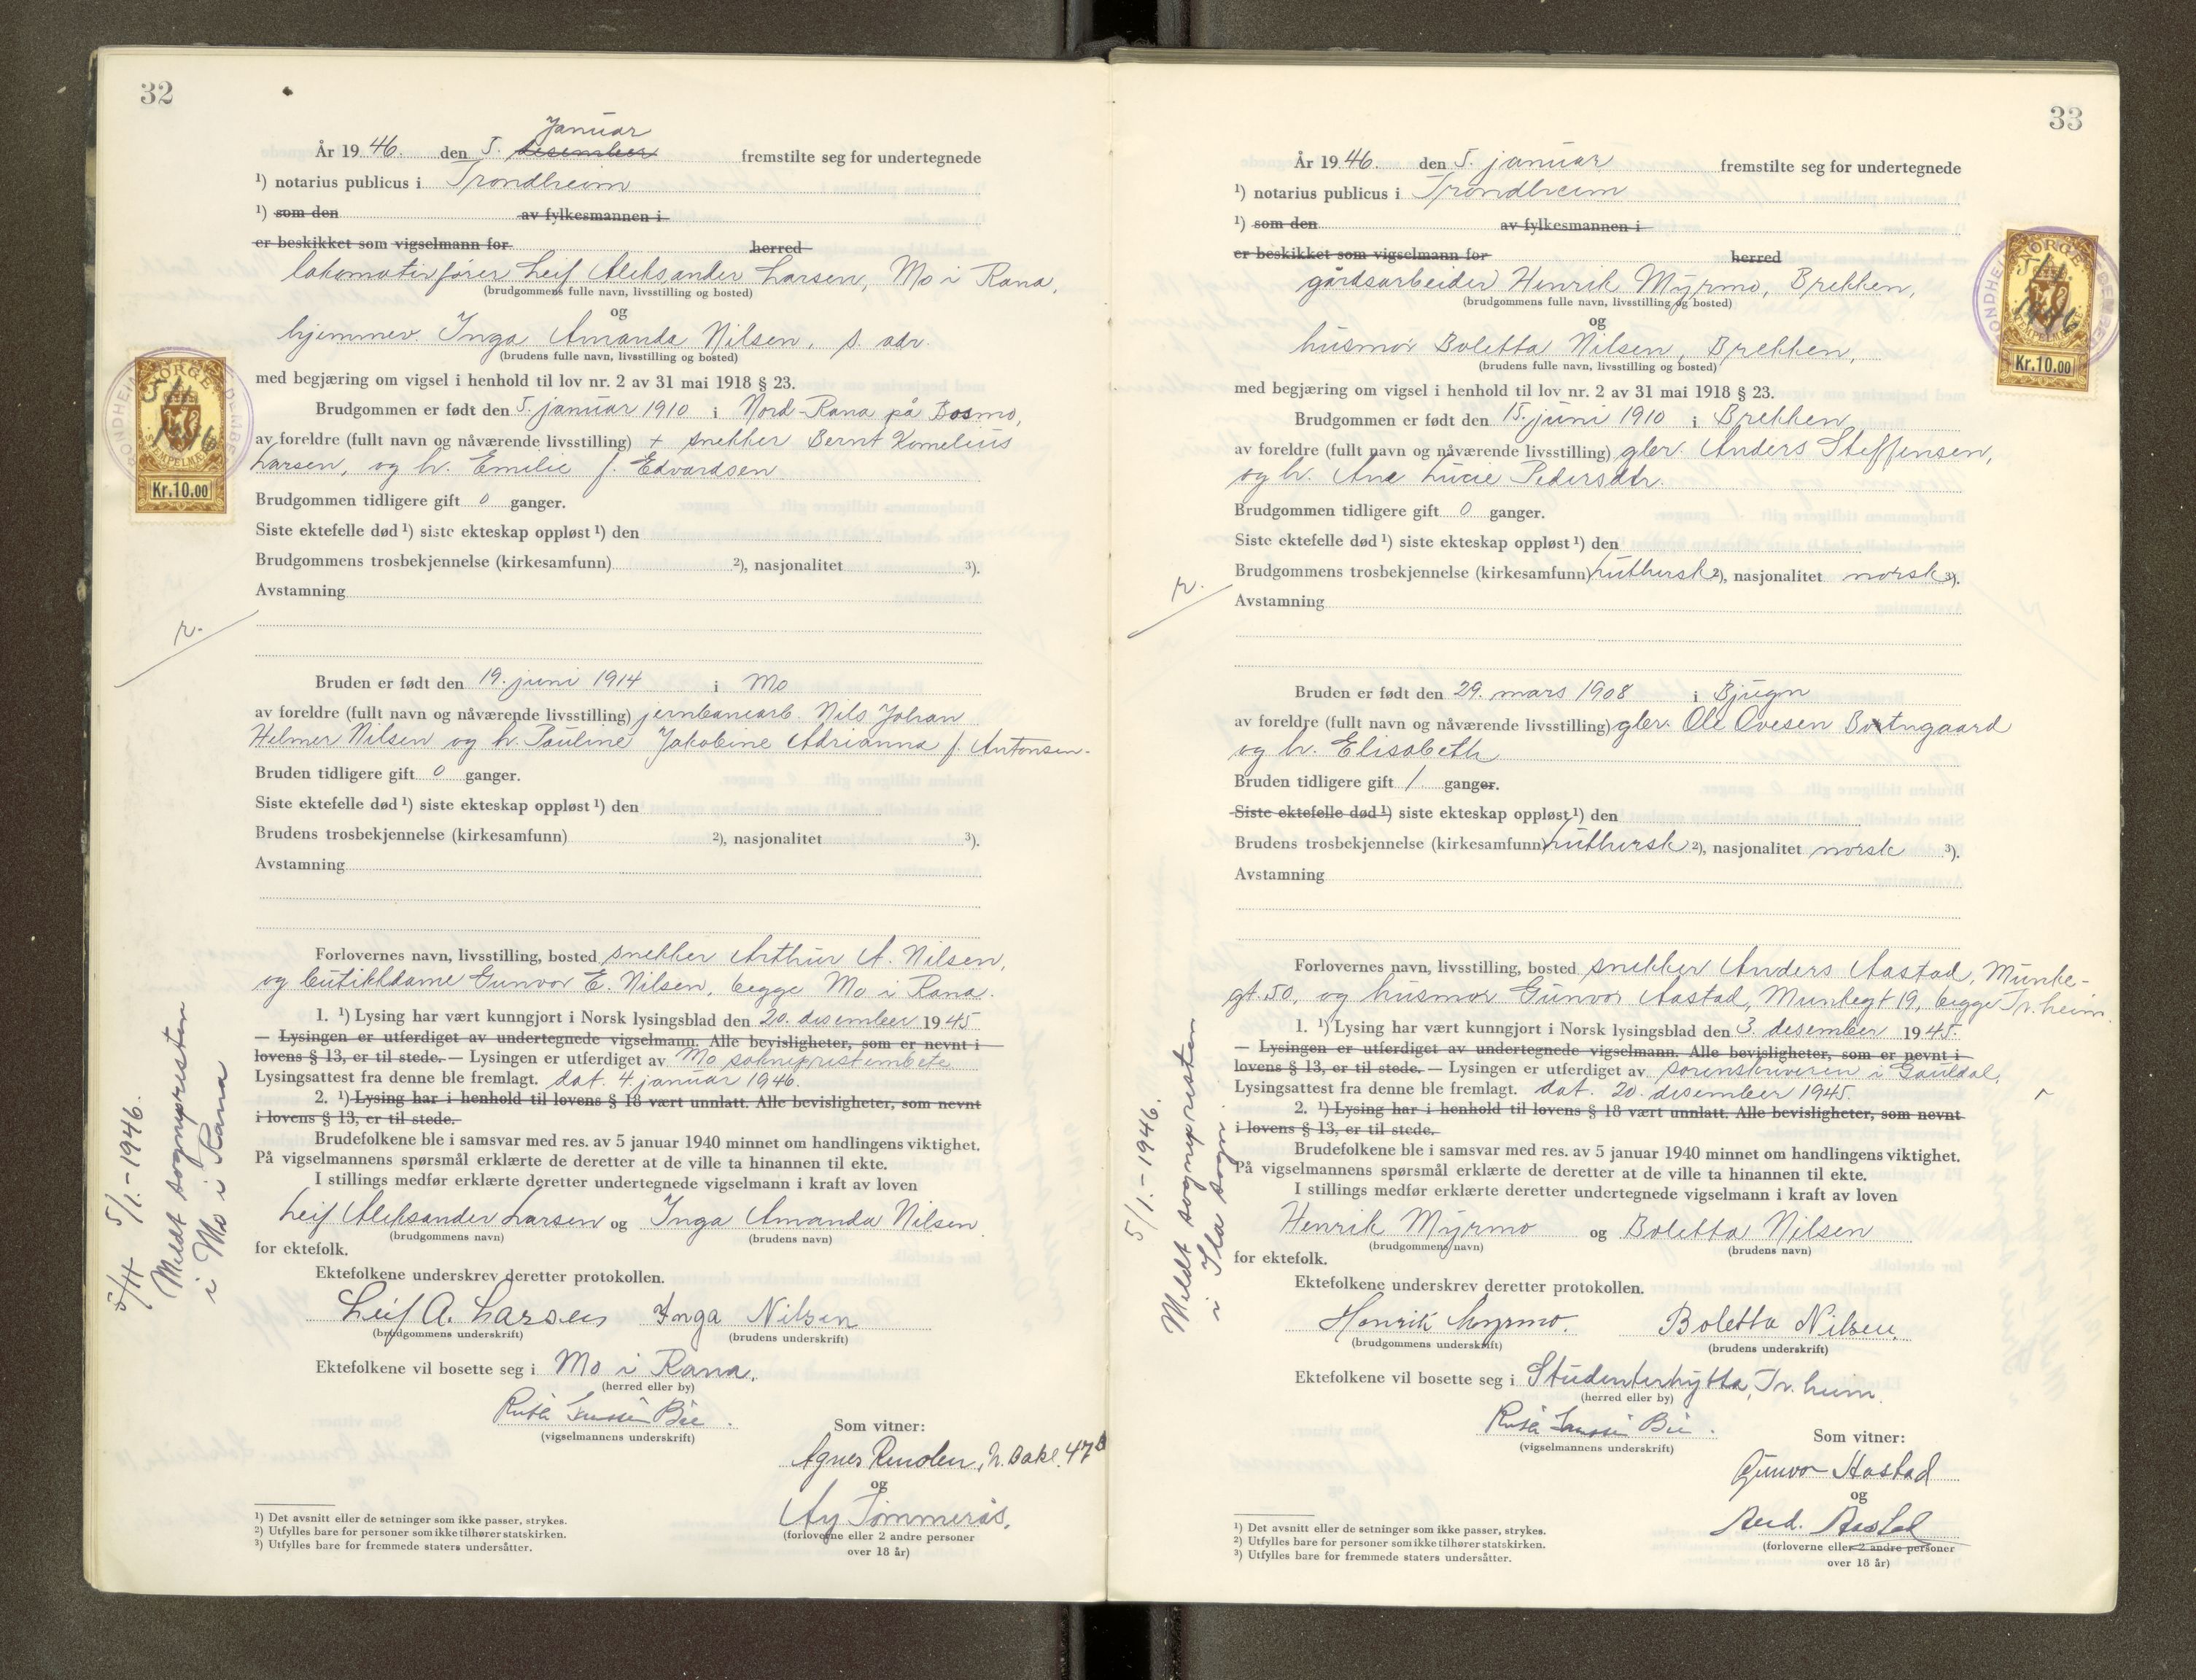 32
År 1946. den 5. desember Januar fremstilte seg for undertegnede
¹) notarius publicus i Trondheim
¹) som den av fylkesmannen i
er beskikket som vigselmann for herred
lokomotivfører Leif Aleksander Larsen, Mo i Rana,
(brudgommens fulle navn, livsstilling og bosted)
og
hjemmev. Inga Amanda Nilsen, s. adr.
(brudens fulle navn, livsstilling og bosted)
med begjæring om vigsel i henhold til lov nr. 2 av 31 mai 1918 § 23.
Brudgommen er født den 5. januar 1910 i Nord-Rana på Bosmo,
av foreldre (fullt navn og nåværende livsstilling) + snekker Bernt Kornelius
Larsen, og h. Emilie f. Edvardsen
Brudgommen tidligere gift 0 ganger.
Siste ektefelle død ¹) siste ekteskap oppløst ¹) den
Brudgommens trosbekjennelse (kirkesamfunn) ²), nasjonalitet ³).
Avstamning
r.
Bruden er født den 19. juni 1914 i Mo
av foreldre (fullt navn og nåværende livsstilling) jernbanearb. Nils Johan
Helmer Nilsen og h. Pauline Jakobine Adrianna f. Antonsen.
Bruden tidligere gift 0 ganger.
Siste ektefelle død ¹) siste ekteskap oppløst ¹) den
Brudens trosbekjennelse (kirkesamfunn) ²), nasjonalitet ³).
Avstamning
Forlovernes navn, livsstilling, bosted snekker Arthur A. Nilsen,
og butikkdame Gunvor E. Nilsen, begge Mo i Rana.
1. ¹) Lysing har vært kunngjort i Norsk lysingsblad den 20. desember 1945
— Lysingen er utferdiget av undertegnede vigselmann. Alle bevisligheter, som er nevnt i
lovens § 13, er til stede. — Lysingen er utferdiget av Mo sokneprestembete
Lysingsattest fra denne ble fremlagt. dat. 4. januar 1946.
2. ¹) Lysing har i henhold til lovens § 18 vært unnlatt. Alle bevisligheter, som nevnt
i lovens § 13, er til stede.
Brudefolkene ble i samsvar med res. av 5 januar 1940 minnet om handlingens viktighet.
På vigselmannens spørsmål erklærte de deretter at de ville ta hinannen til ekte.
I stillings medfør erklærte deretter undertegnede vigselmann i kraft av loven
Leif Aleksander Larsen og Inga Amanda Nilsen
(brudgommens navn) (brudens navn)
for ektefolk.
Ektefolkene underskrev deretter protokollen.
Leif A. Larsen Inga Nilsen
(brudgommens underskrift) (brudens underskrift)
Ektefolkene vil bosette seg i Mo i Rana.
(herred eller by)
(vigselmannens underskrift)
Som vitner:
Agnes Renolen, N. Bakl. 47b
og
Ay Tømmerås.
(forloverne eller 2 andre personer
over 18 år)
¹) Det avsnitt eller de setninger som ikke passer, strykes.
²) Utfylles bare for personer som ikke tilhører statskirken.
³) Utfylles bare for fremmede staters undersåtter.
5/1.-1946.
Meldt sognepresten
i Mo i Rana
NORGE
STEMPELMERKE
Kr.10.00
33
År 1946. den 5. januar fremstilte seg for undertegnede
¹) notarius publicus i Trondheim
¹) som den av fylkesmannen i
er beskikket som vigselmann for herred
gårdsarbeider Henrik Myrmo, Brekken,
(brudgommens fulle navn, livsstilling og bosted)
og
husmor Boletta Nilsen, Brekken,
(brudens fulle navn, livsstilling og bosted)
med begjæring om vigsel i henhold til lov nr. 2 av 31 mai 1918 § 23.
Brudgommen er født den 15. juni 1910 i Brekken
av foreldre (fullt navn og nåværende livsstilling) gbr. Anders Steffensen,
og h. Ane Lucie Pedersdtr.
Brudgommen tidligere gift 0 ganger.
Siste ektefelle død ¹) siste ekteskap oppløst ¹) den
Brudgommens trosbekjennelse (kirkesamfunn) luthersk ²), nasjonalitet norsk ³).
Avstamning
r.
Bruden er født den 29. mars 1908 i Bjugn
av foreldre (fullt navn og nåværende livsstilling) gbr. Ole Ovesen Botngaard
og h. Elisabeth
Bruden tidligere gift 1. ganger.
Siste ektefelle død ¹) siste ekteskap oppløst ¹) den
Brudens trosbekjennelse (kirkesamfunn) luthersk ²), nasjonalitet norsk ³).
Avstamning
Forlovernes navn, livsstilling, bosted snekker Anders Aastad, Munke-
gt. 50, og husmor Gunvor Aastad, Munkegt 19, begge Tr.heim.
1. ¹) Lysing har vært kunngjort i Norsk lysingsblad den 3. desember 1945.
— Lysingen er utferdiget av undertegnede vigselmann. Alle bevisligheter, som er nevnt i
lovens § 13, er til stede. — Lysingen er utferdiget av sorenskriveren i Gauldal,
Lysingsattest fra denne ble fremlagt. dat. 20. desember 1945.
2. ¹) Lysing har i henhold til lovens § 18 vært unnlatt. Alle bevisligheter, som nevnt
i lovens § 13, er til stede.
Brudefolkene ble i samsvar med res. av 5 januar 1940 minnet om handlingens viktighet.
På vigselmannens spørsmål erklærte de deretter at de ville ta hinannen til ekte.
I stillings medfør erklærte deretter undertegnede vigselmann i kraft av loven
Henrik Myrmo og Boletta Nilsen
(brudgommens navn) (brudens navn)
for ektefolk.
Ektefolkene underskrev deretter protokollen.
Henrik Myrmo. Boletta Nilsen.
(brudgommens underskrift) (brudens underskrift)
Ektefolkene vil bosette seg i Studenterhytta, Tr.heim.
(herred eller by)
(vigselmannens underskrift)
Som vitner:
Gunvor Aastad
og
And. Aastad
(forloverne eller 2 andre personer
over 18 år)
¹) Det avsnitt eller de setninger som ikke passer, strykes.
²) Utfylles bare for personer som ikke tilhører statskirken.
³) Utfylles bare for fremmede staters undersåtter.
5/1.-1946.
Meldt sognepresten
i Ila sogn.
NORGE
Kr.10.00